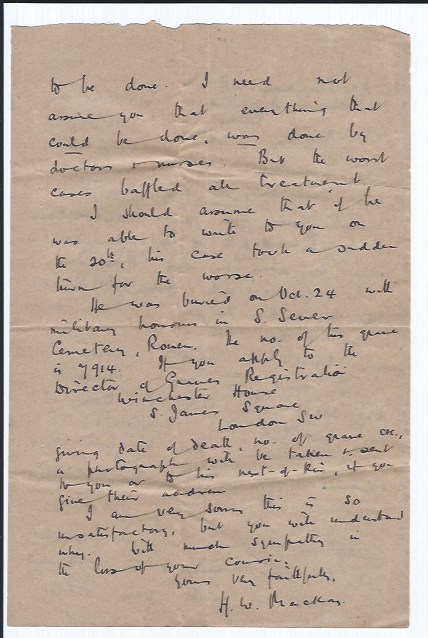 to be done. I need not
assure you that everything that
could be done, was done by
doctors & nurses. But the worst
cases baffled all treatment.
I should assume that if he
was able to write to you on
the 20th, his case took a sudden
turn for the worse.
He was buried on Oct. 24 with
military honours in S. Sever
Cemetery, Rouen. The no. of his grave
is 7914. If you apply to the
Director of Graves Registration
Winchester House
S. James Square
London SW
giving date of death, no. of grave etc,
a photograph will be taken & sent
to you or to his next-of-kin, if you
give their address
I am very sorry this is so
unsatisfactory, but you will understand
why. With much sympathy in
the loss of your cousin,
Yours very faithfully,
H. W. Mackay.